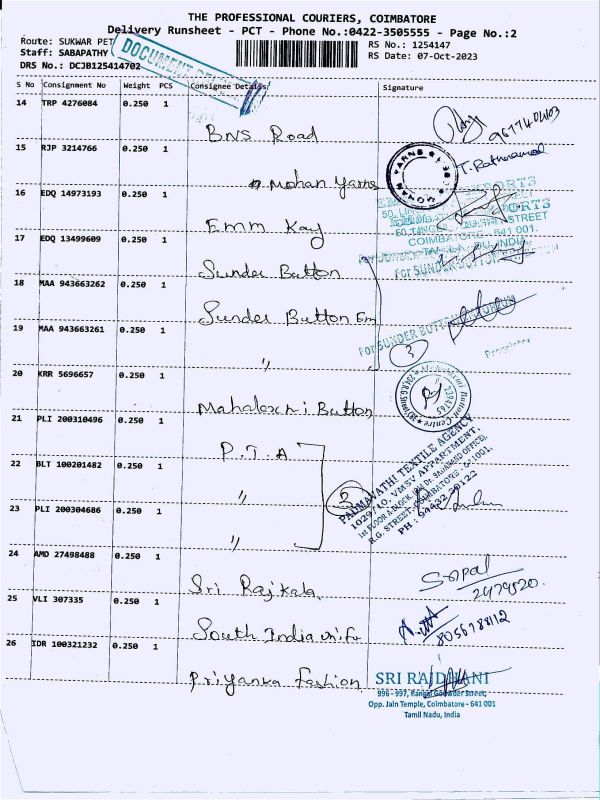 THE PROFESSIONAL COURIERS, COIMBATORE
Delivery Runsheet - PCT - Phone No.:0422-3505555 - Page No.:2
Route: SUKWAR PET
RS No.: 1254147
Staff: SABAPATHY
RS Date: 07-Oct-2023
DRS No.: DCJB125414702
DOCUMENT
S No Consignment No Weight PCS Consignee Details Signature
14 TRP 4276084 0.250 1
BNS Road
9677404103
15 RJP 3214766 0.250 1
Mohan Yarns
MOHAN YARNS
T. Rathnamal
16 EDQ 14973193 0.250 1
Emm Kay
STREET
COIMBATORE - 641 001.
17 EDQ 13499609 0.250 1
Sunder Button
For SUNDER BUTTON
18 MAA 943662362 0.250 1
Sunder Button Em
For SUNDER BUTTON
Proprietor
19 MAA 943663261 0.250 1
"
3
20 KRR 5696657 0.250 1
Mahalaxmi Button
21 PLI 200310496 0.250 1
P.T.A
PADMAVATHI TEXTILE AGENCY
1029/10, VMSV APPARTMENT,
R.G. STREET, COIMBATORE - 641001.
22 BLT 100201482 0.250 1
"
3
23 PLI 200304686 0.250 1
"
24 AMD 27498488 0.250 1
Sri Rajkala
Gopal
2479520
25 VLI 307335 0.250 1
South India unifo
8056788112
26 IDR 100321232 0.250 1
Priyanka Fashion
SRI RAJDHANI
996 - 997, Rangai Gowder Street,
Opp. Jain Temple, Coimbatore - 641 001
Tamil Nadu, India